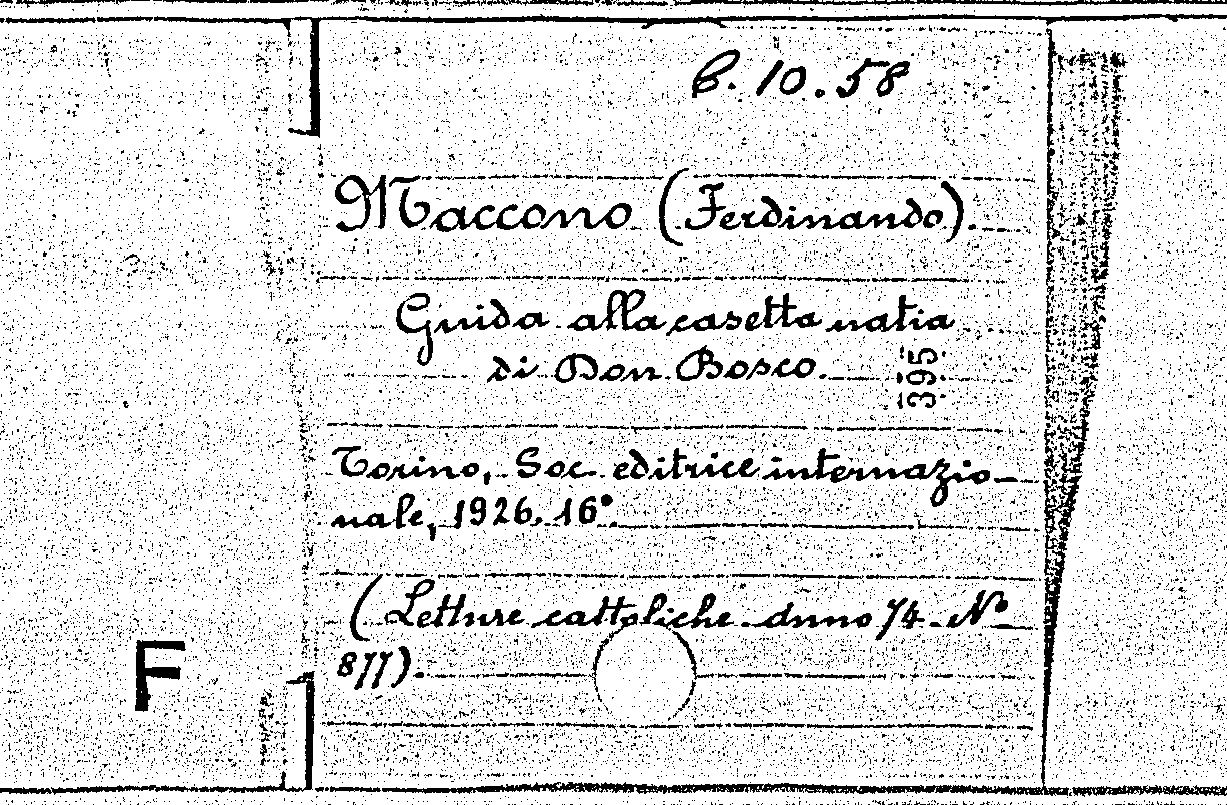 C. 10.58
Maccono (Ferdinando).
Guida alla casetta natia
di Don Bosco.
395
Torino, Soc. editrice internazio-
nale, 1926. 16°.
(Letture cattoliche anno 74 N°
877).
F